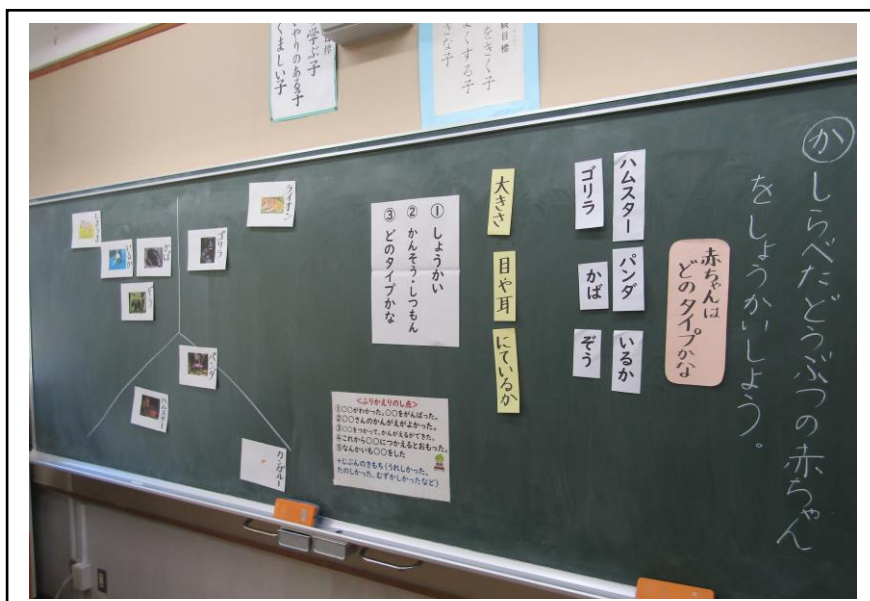 標
を学ぶ子
いやりのある子
くましい子
級目標
をきく子
よくする子
きな子
かしらべたどうぶつの赤ちゃん
をしょうかいしよう。
赤ちゃんは
どのタイプかな
ハムスター
パンダ
いるか
ゴリラ
かば
ぞう
大きさ
目や耳
にているか
①しょうかい
②かんそう・しつもん
③どのタイプかな
<ふりかえりのし点>
①○○がわかった。○○をがんばった。
②○○さんのかんがえがよかった。
③○○をつかって、かんがえるができた。
④これから○○につかえるとおもった。
⑤なんかいも○○をした
+じぶんのきもち(うれしかった、
たのしかった、むずかしかったなど)
ライオン
ゴリラ
かば
いるか
しまうま
ぞう
パンダ
ハムスター
カンガルー